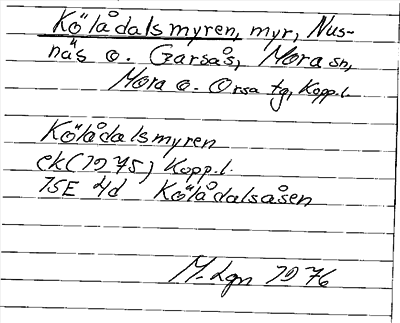 Kölådalsmyren, myr, Nus-
näs o. Garsås, Mora sn,
Mora o. Orsa tg, Kopp.l.
Kölådalsmyren
ek (1975) Kopp.l.
15E 4d Kölådalsåsen
M. Lgn 1976